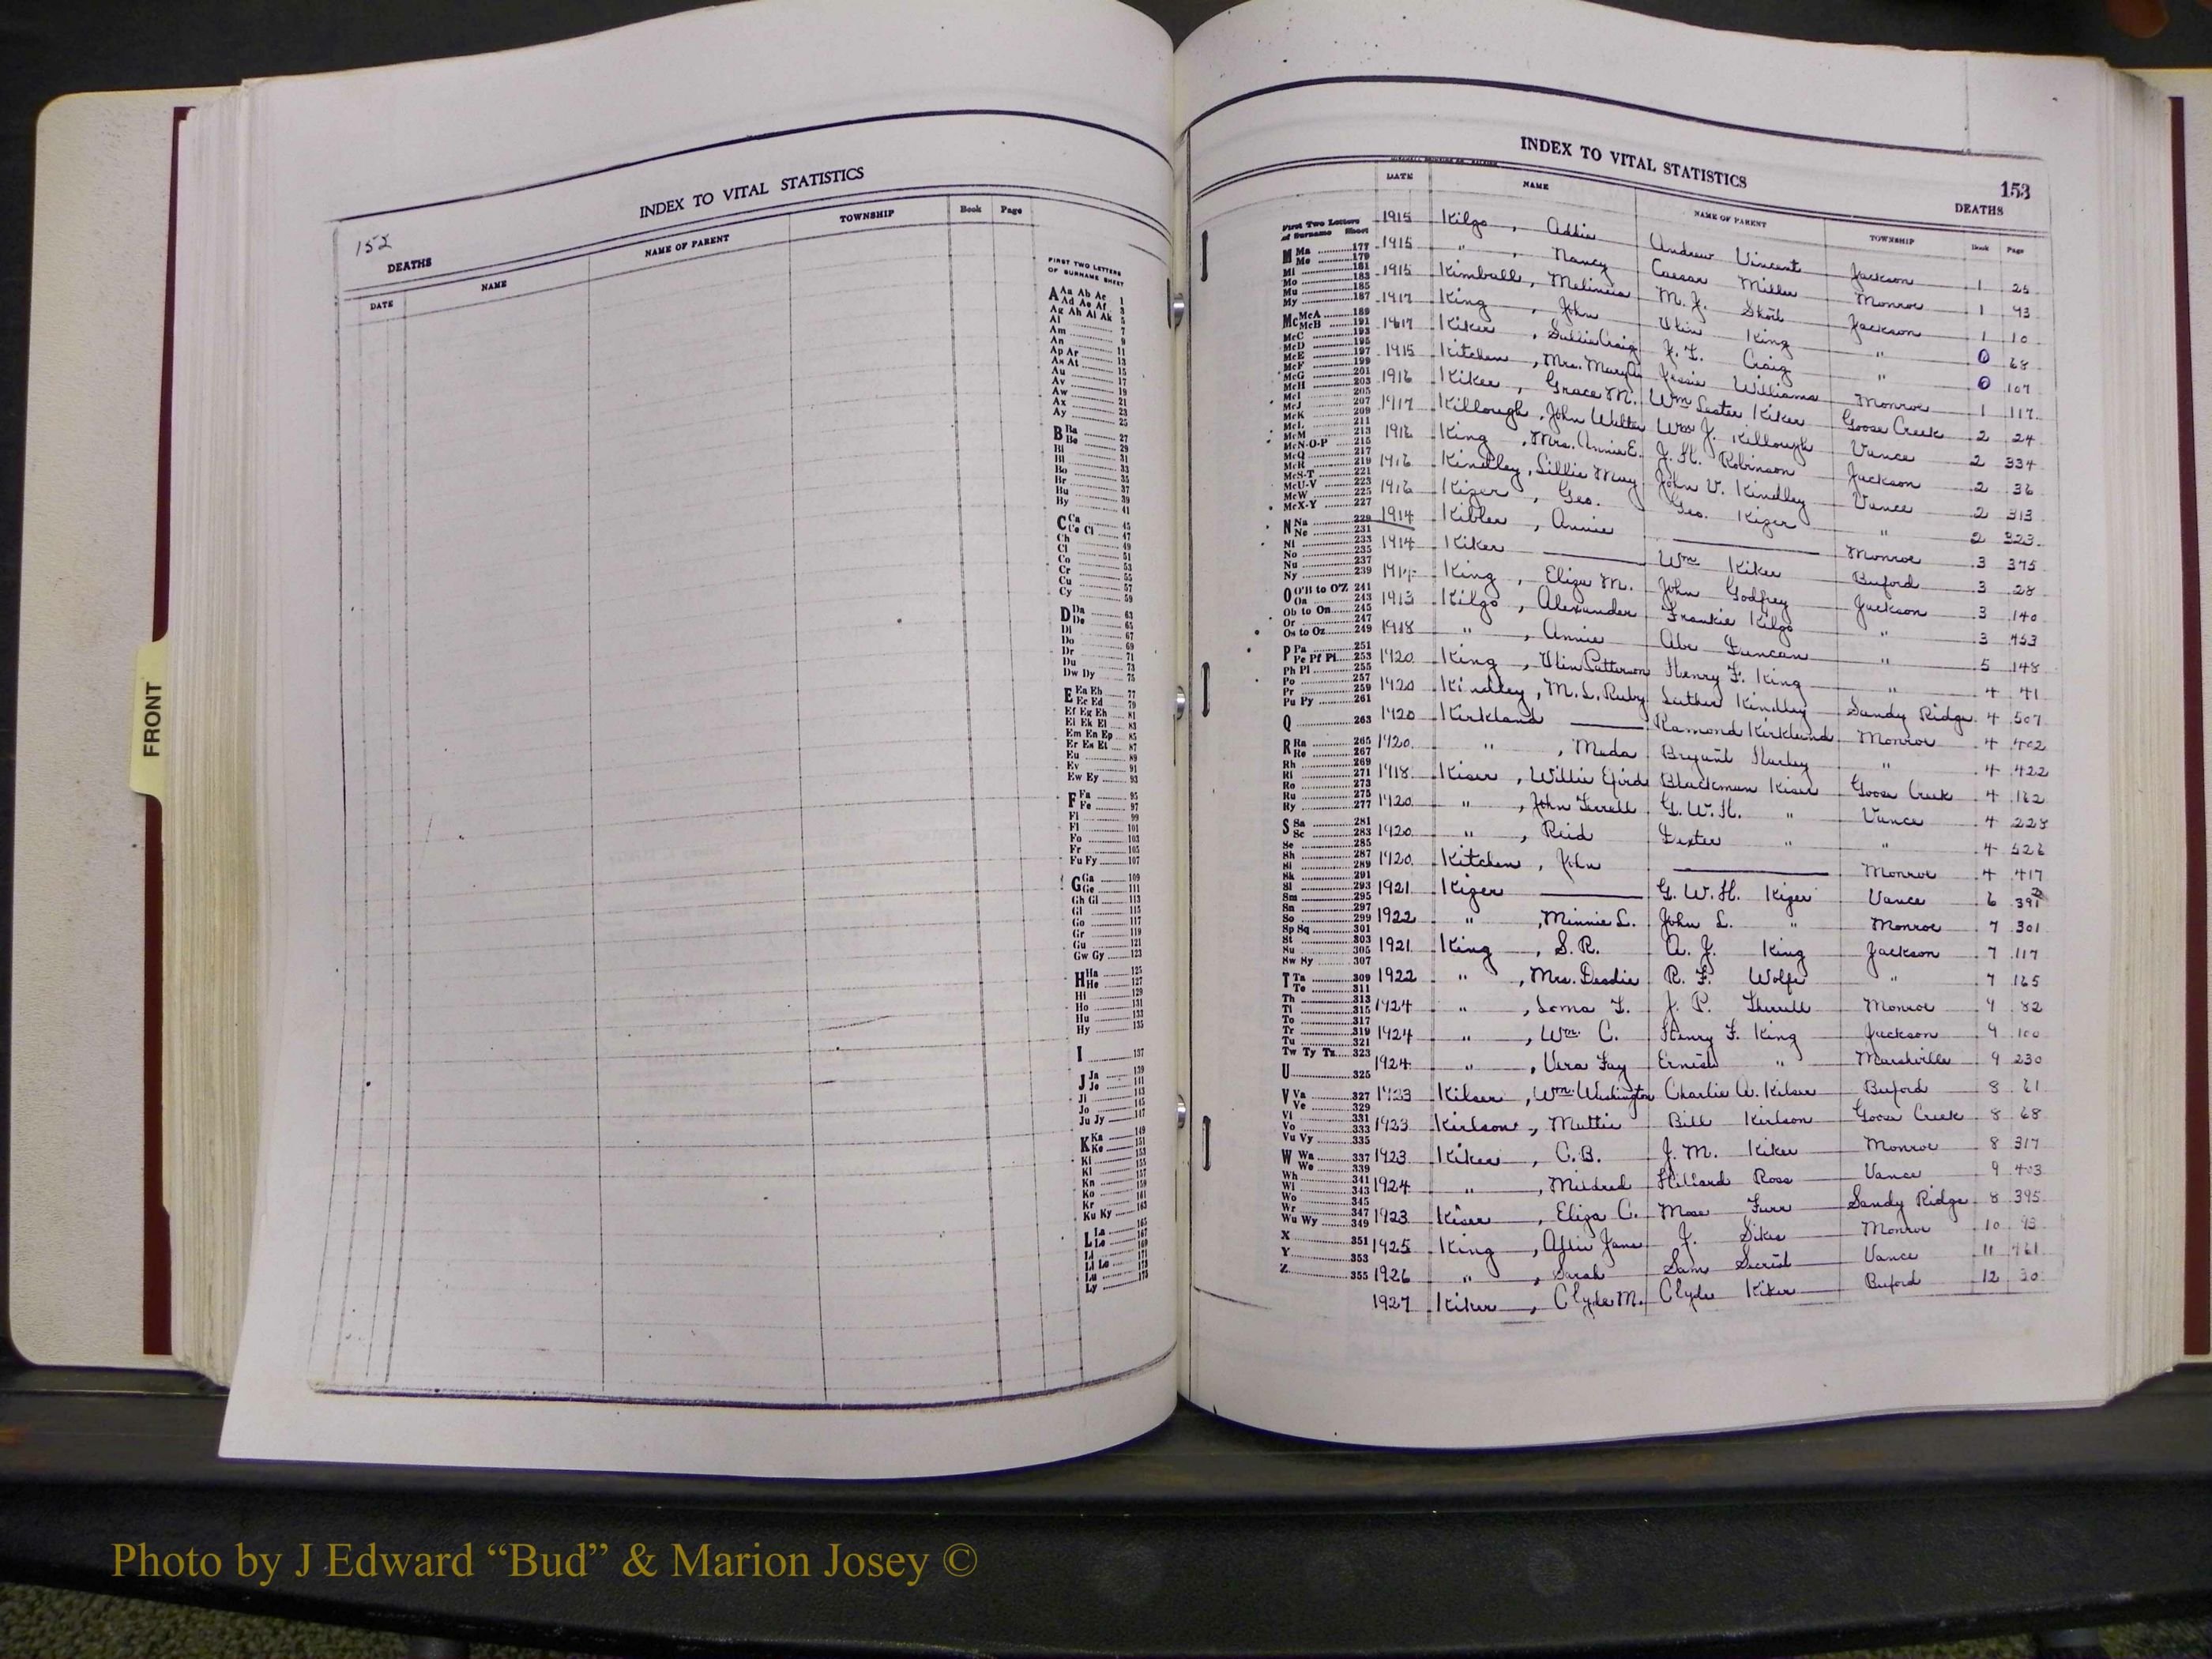 INDEX TO VITAL STATISTICS
152
DEATHS
DATE NAME NAME OF PARENT TOWNSHIP Book Page
FIRST TWO LETTERS
OF SURNAME SHEET
A Aa Ab Ac 1
Ad Ae Af 3
Ag Ah Ai Ak 5
Al 7
Am 9
An 11
Ap Ar 13
As At 15
Au 17
Av 19
Aw 21
Ax 23
Ay 25
B Ba 27
Be 29
Bi 31
Bl 33
Bo 35
Br 37
Bu 39
By 41
C Ca 45
Ce Cl 47
Ch 49
Cl 51
Co 53
Cr 55
Cu 57
Cy 59
D Da 63
De 65
Di 67
Do 69
Dr 71
Du 73
Dw Dy 75
E Ea Eb 77
Ec Ed 79
Ef Eg Eh 81
Ei Ek El 83
Em En Ep 85
Er Es Et 87
Eu 89
Ev 91
Ew Ey 93
F Fa 95
Fe 97
Fi 99
Fl 101
Fo 103
Fr 105
Fu Fy 107
G Ga 109
Ge 111
Gh Gi 113
Gl 115
Go 117
Gr 119
Gu 121
Gw Gy 123
H Ha 125
He 127
Hi 129
Ho 131
Hu 133
Hy 135
I 137
J Ja 139
Je 141
Ji 143
Jo 145
Ju Jy 147
K Ka 149
Ke 151
Ki 153
Kl 155
Kn 157
Ko 159
Kr 161
Ku Ky 163
L La 165
Le 167
Li 169
Ll Lo 171
Lu 173
Ly 175
FRONT
INDEX TO VITAL STATISTICS
153
DEATHS
DATE NAME NAME OF PARENT TOWNSHIP Book Page
First Two Letters
of Surname Sheet
M Ma 177
Me 179
Mi 181
Mo 183
Mu 185
My 187
Mc McA 189
McB 191
McC 193
McD 195
McE 197
McF 199
McG 201
McH 203
McI 205
McJ 207
McK 209
McL 211
McM 213
McN-O-P 215
McQ 217
McR 219
McS-T 221
McU-V 223
McW 225
McX-Y 227
N Na 229
Ne 231
Ni 233
No 235
Nu 237
Ny 239
O O'B to O'Z 241
Oa 243
Ob to On 245
Or 247
Os to Oz 249
P Pa 251
Pe Pf Pi 253
Ph Pl 255
Po 257
Pr 259
Pu Py 261
Q 263
R Ra 265
Re 267
Rh 269
Ri 271
Ro 273
Ru 275
Ry 277
S Sa 281
Sc 283
Se 285
Sh 287
Si 289
Sk 291
Sl 293
Sm 295
Sn 297
So 299
Sp Sq 301
St 303
Su 305
Sw Sy 307
T Ta 309
Te 311
Th 313
Ti 315
To 317
Tr 319
Tu 321
Tw Ty Tz 323
U 325
V Va 327
Ve 329
Vi 331
Vo 333
Vu Vy 335
W Wa 337
We 339
Wh 341
Wi 343
Wo 345
Wr 347
Wu Wy 349
X 351
Y 353
Z 355
1915 Kilgo, Addie Andrew Vincent Jackson 1 25
1915 ", Nancy Caesar Miller Monroe 1 93
1915 Kimball, M. J. Jackson 1 10
1917 King, John Ulin King " 0 68
1917 Kiker, Sallie Craig J. L. Craig " 0 107
1915 Kitchen, Mrs. Mary A. Jessie Williams Monroe 1 117
1916 Kiker, Grace M. Wm Lester Kiker Goose Creek 2 24
1917 Killough, John Walter Wm J. Killough Vance 2 334
1916 King, Mrs. Annie E. J. H. Robinson Jackson 2 36
1916 Kindley, Lillie May John V. Kindley Vance 2 313
1916 Kizer, Geo. Geo. Kizer " 2 323
1914 Kibler, Annie Monroe 3 375
1914 Kiker Wm Kiker Buford 3 28
1914 King, Eliza M. John Godfrey Jackson 3 140
1913 Kilgo, Alexander Frankie Kilgo " 3 453
1918 ", Annie Abe Duncan " 5 148
1920 King, Ulin Patterson Henry F. King " 4 41
1920 Kindley, M. L. Ruby Luther Kindley Sandy Ridge 4 507
1920 Kirkland Ramond Kirkland Monroe 4 402
1920 ", Meda Bryant Hurley " 4 422
1918 Kiser, Willie Efird Blackman Kiser Goose Creek 4 162
1920 ", John Terrell G. W. H. " Vance 4 228
1920 ", Reid Dexter " " 4 526
1920 Kitchen, John Monroe 4 417
1921 Kizer G. W. H. Kizer Vance 6 391
1922 ", Minnie L. John L. " Monroe 7 301
1921 King, S. R. A. J. King Jackson 7 117
1922 ", Mrs. Dessie R. F. Wolfe " 7 165
1924 ", Loma L. J. P. Therrell Monroe 9 82
1924 ", Wm. C. Henry F. King Jackson 9 100
1924 ", Vera Fay Ernest " Marshville 9 230
1923 Kilser, Wm. Washington Charlie A. Kelser Buford 8 61
1923 Kirlson, Mattie Bill Kirlson Goose Creek 8 68
1923 Kiker, C. B. J. M. Kiker Monroe 8 317
1924 ", Mildred Hillard Ross Vance 9 403
1923 Kiser, Eliza C. Mose Furr Sandy Ridge 8 395
1925 King, Allie Jane J. Sikes Monroe 10 93
1926 ", Sarah Sam Secrest Vance 11 461
1927 Kiker, Clyde M. Clyde Kiker Buford 12 30
Photo by J Edward “Bud” & Marion Josey ©